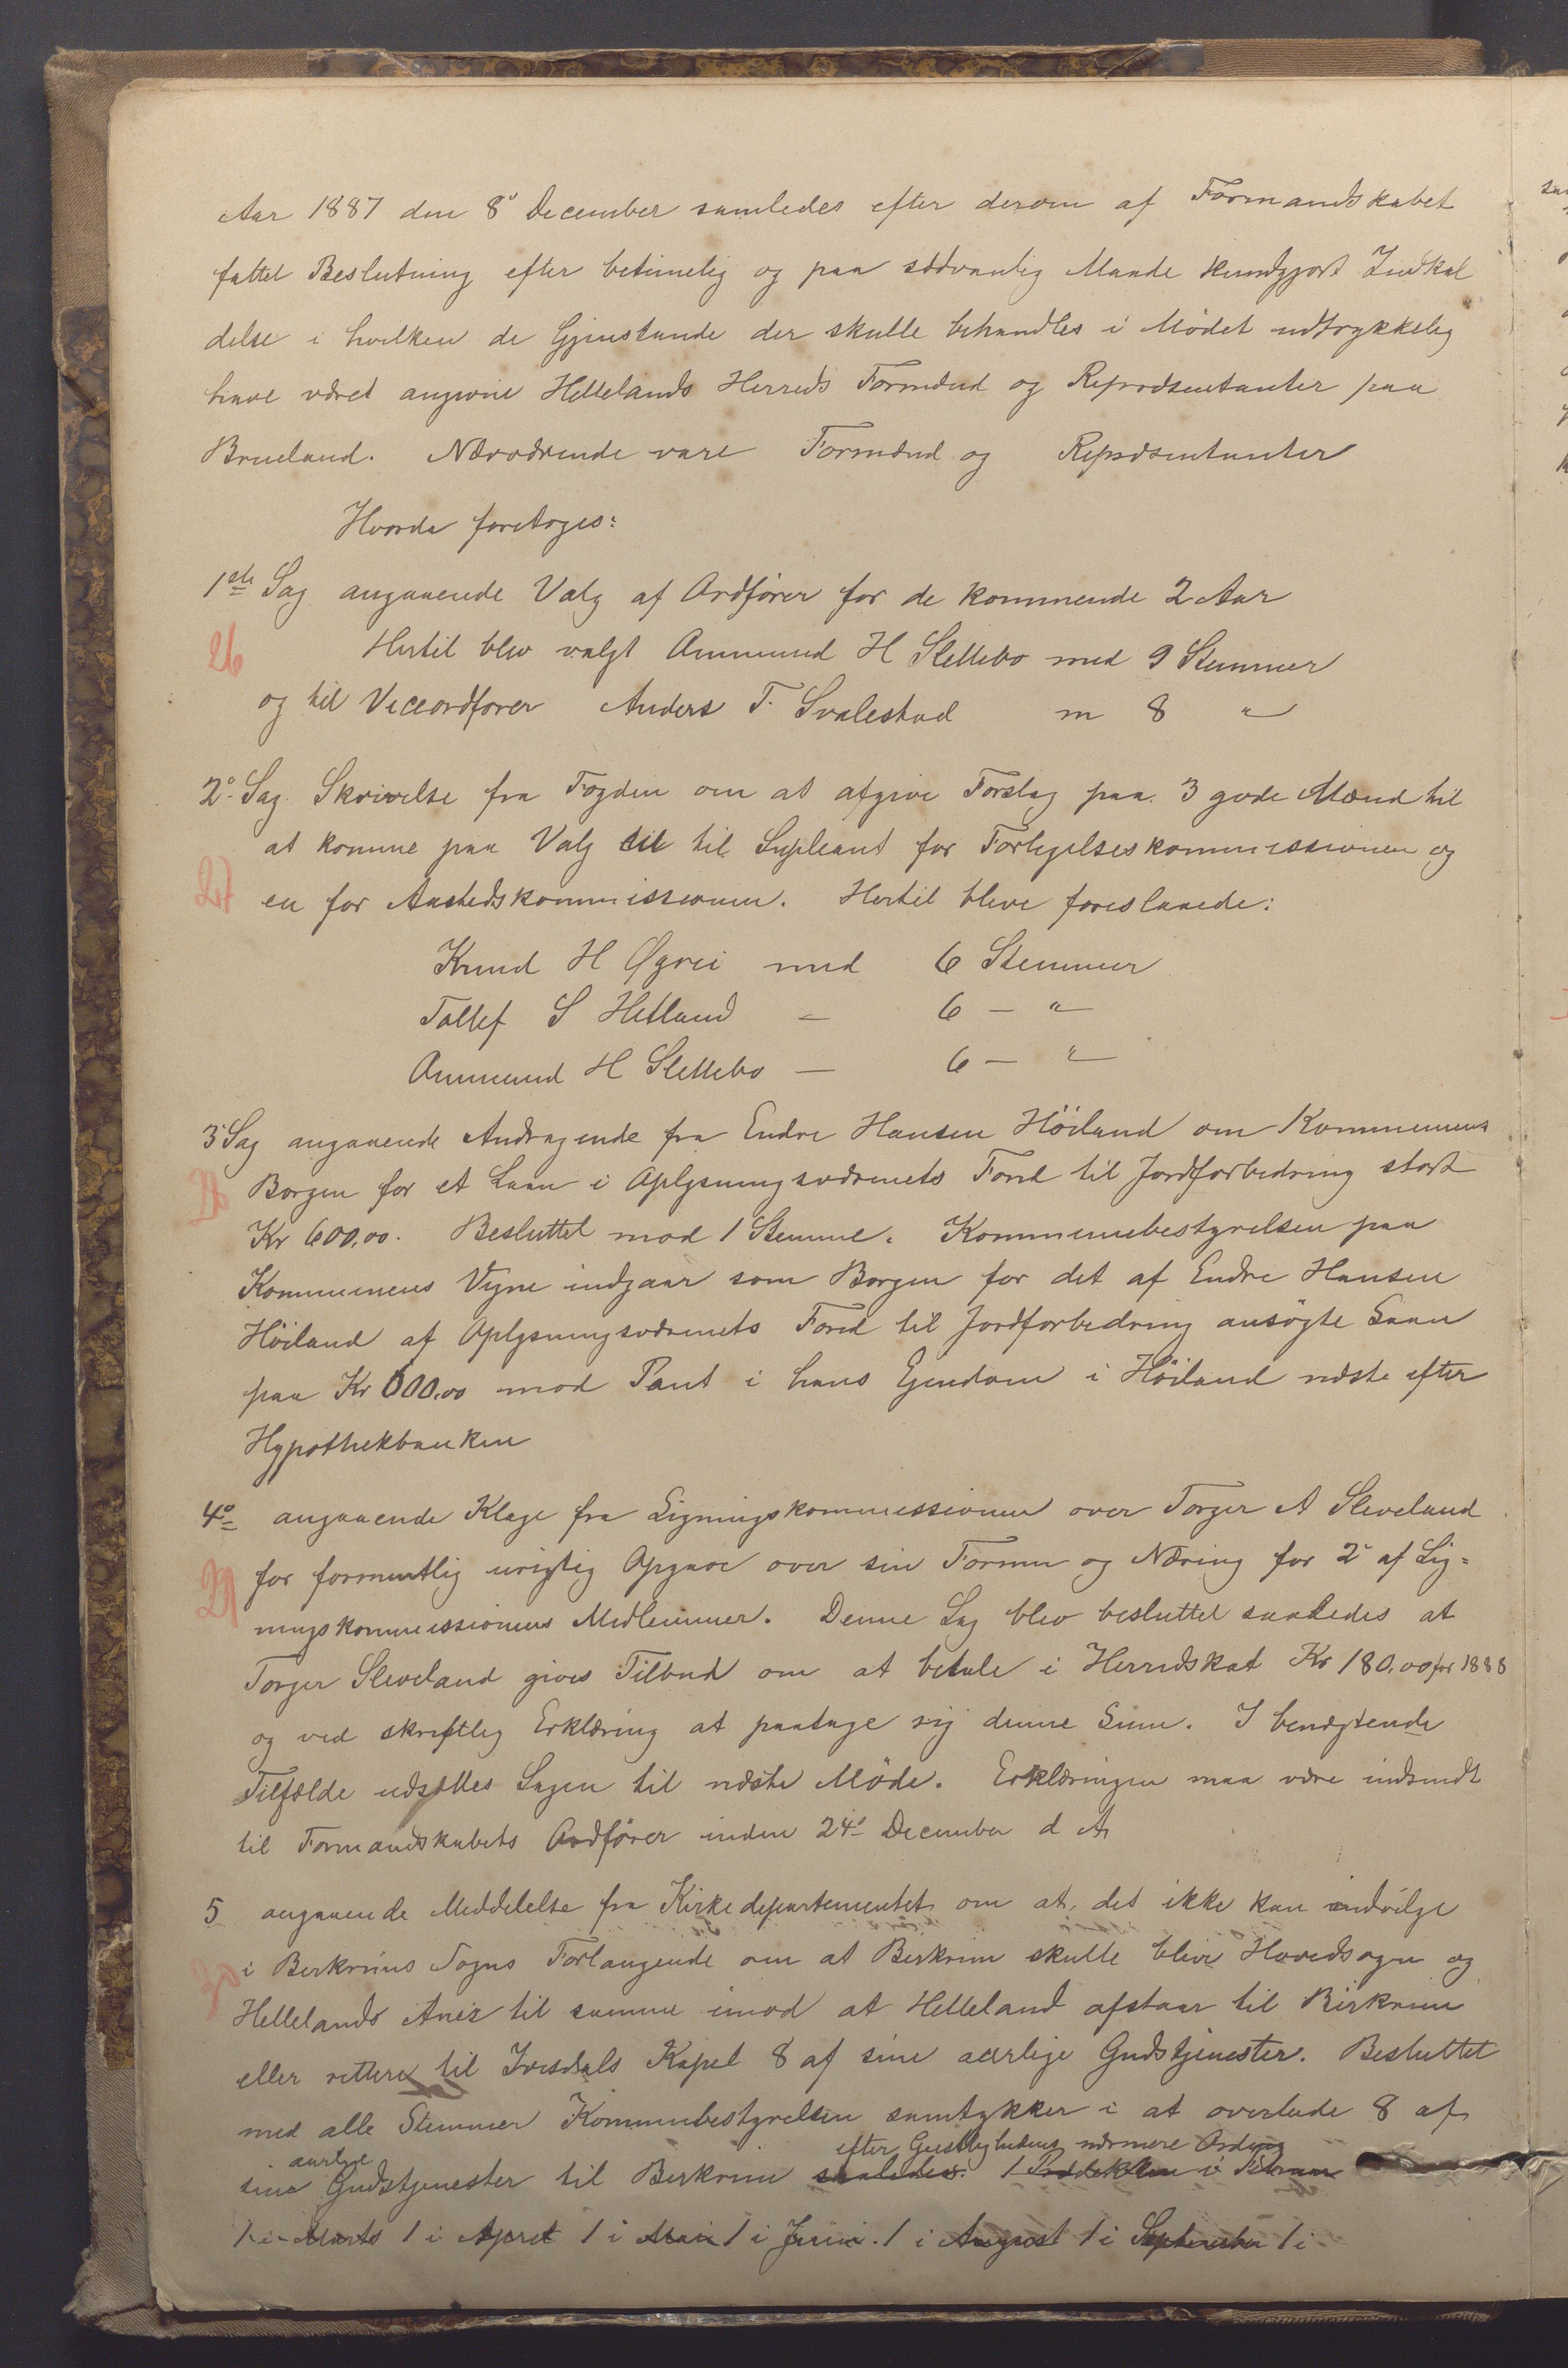 Aar 1887 den 8' December samledes efter derom af Formandskabet
fattet Beslutning efter betimelig og paa sædvanlig Maade kundgjort Indkal
delse i hvilken de Gjenstande der skulle behandles i Mødet udtrykkelig
have været angivne Hellelands Herreds Formænd og Repræsentanter paa
Brueland. Nærværende vare Formænd og Repræsentanter
Hvorda foretoges:
1ste Sag angaaende Valg af Ordfører for de kommende 2 Aar
26
Hertil blev valgt Ammund H Slettebø med 9 Stemmer
og til Viceordfører Anders T. Svalestad m 8 "
2o Sag Skrivelse fra Fogden om at afgive Forslag paa 3 gode Mænd til
at komme paa Valg til til Supleant for Forligelseskommissionen og
27
en for Aastedskommissionen. Hertil bleve foreslaaede:
Knud H Øgrei med 6 Stemmer
Tollef S Hetland — 6 — "
Ammund H Slettebø — 6 — "
3' Sag angaaende Andragende fra Endre Hansen Höiland om Kommunens
28
Borgen for et Laan i Oplysningsvæsenets Fond til Jordforbedring stort
Kr 600,00. Besluttet mod 1 Stemme. Kommunebestyrelsen paa
Kommunens Vegne indgaar som Borgen for det af Endre Hansen
Höiland af Oplysningsvæsenets Fond til Jordforbedring ansögte Laan
paa Kr 600,00 mod Pant i hans Ejendom i Höiland næste efter
Hypothekbanken
4o angaaende Klage fra Ligningskommissionen over Torger A Sleveland
29
for formentlig urigtig Opgave over sin Formue og Næring for 2' af Lig=
ningskommissionens Medlemmer. Denne Sag blev besluttet saaledes at
Torger Sleveland gives Tilbud om at betale i Herredskat Kr 180,00 for 1888
og ved skreftlig Erklæring at paatage sig denne Sum. I benægtende
Tilfælde udsættes Sagen til næste Möde. Erklæringen maa være indsendt
til Formandskabets Ordförer inden 24' December d A
5 angaaende Meddelelse fra Kirkedepartementet om at det ikke kan indvilge
30
i Berkrims Sogns Forlangende om at Berkrim skulle blive Hovedsogn og
Hellelands Anex til samme imod at Helleland afstaar til Birkrim
eller rettere til Ivesdals Kapel 8 af sine aarlige Gudstjenester. Besluttet
med alle Stemmer Kommunebestyrelsen samtykker i at overlade 8 af
aarlige efter Geistlighedens nærmere Ordning
sine Gudstjenester til Berkrim saaledes. 1 i Februar
1 i Marts 1 i April 1 i Mai 1 i Juni. 1 i August 1 i September 1 i